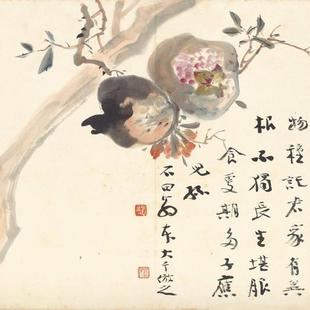 物種託君家有無
根不獨長生堪服
食更期多子應
兒孫
石田翁本大千倣之